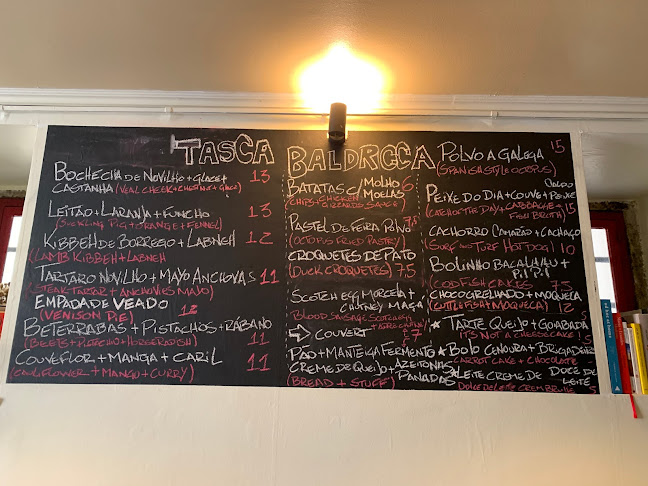 TASCA BALDRACCA
BOCHECHA DE NOVILHO + GLACE +
CASTANHA (VEAL CHEEK + CHESTNUT + GLACE) 13
LEITÃO + LARANJA + FUNCHO 13
(SUCKLING PIG + ORANGE + FENNEL)
KIBBEH DE BORREGO + LABNEH 12
(LAMB KIBBEH + LABNEH
TÁRTARO NOVILHO + MAYO ANCHOVAS 11
(STEAK TARTAR + ANCHOVIES MAYO)
EMPADA DE VEADO 12
(VENISON PIE)
BETERRABAS + PISTACHOS + RÁBANO
(BEETS + PISTACHIO + HORSERADISH) 11
COUVEFLOR + MANGA + CARIL 11
(CAULIFLOWER + MANGO + CURRY)
BATATAS C/ MOLHO 6
MOELAS
(CHIPS + CHICKEN GIZZARDS SAUCE)
PASTEL DE FEIRA POLVO 7,5
(OCTOPUS FRIED PASTRY)
CROQUETES DE PATO
(DUCK CROQUETES) 7.5
SCOTCH EGG MORCELA +
CHUTNEY MAÇÃ
BLOOD SAUSAGE SCOTCH EGG
→ COUVERT £7
PÃO + MANTEIGA FERMENTO
CREME DE QUEIJO + AZEITONAS
(BREAD + STUFF) PANADAS
POLVO A GALEGA 15
(SPANISH STYLE OCTOPUS)
PEIXE DO DIA + COUVE + CALDO PEIXE
(CATCH OF THE DAY + CABBAGE + FISH BROTH) 15
CACHORRO CAMARÃO + CACHAÇO
(SURF N' TURF HOT DOG) 10
BOLINHO BACALHAU +
PIL PIL
(COD FISH CAKES 7.5
CHOCO GRELHADO + MOQUECA
(CUTTLEFISH + MOQUECA) 12
★ TARTE QUEIJO + GOIABADA
IT'S NOT A CHEESECAKE! 5
★ BOLO CENOURA + BRIGADEIRO
CARROT CAKE + CHOCOLATE 5
★ LEITE CREME DE DOCE DE
LEITE
DOCE DE LEITE CREM BRULEE 5